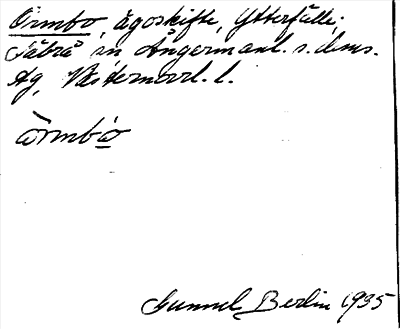 Ormbo, Ägoskifte, Ytterfälle;
Sättrå in Ångermanl. s. dems.
Ag, Västernorrl. l.
òrmbò
Gunnel Berlin 1935